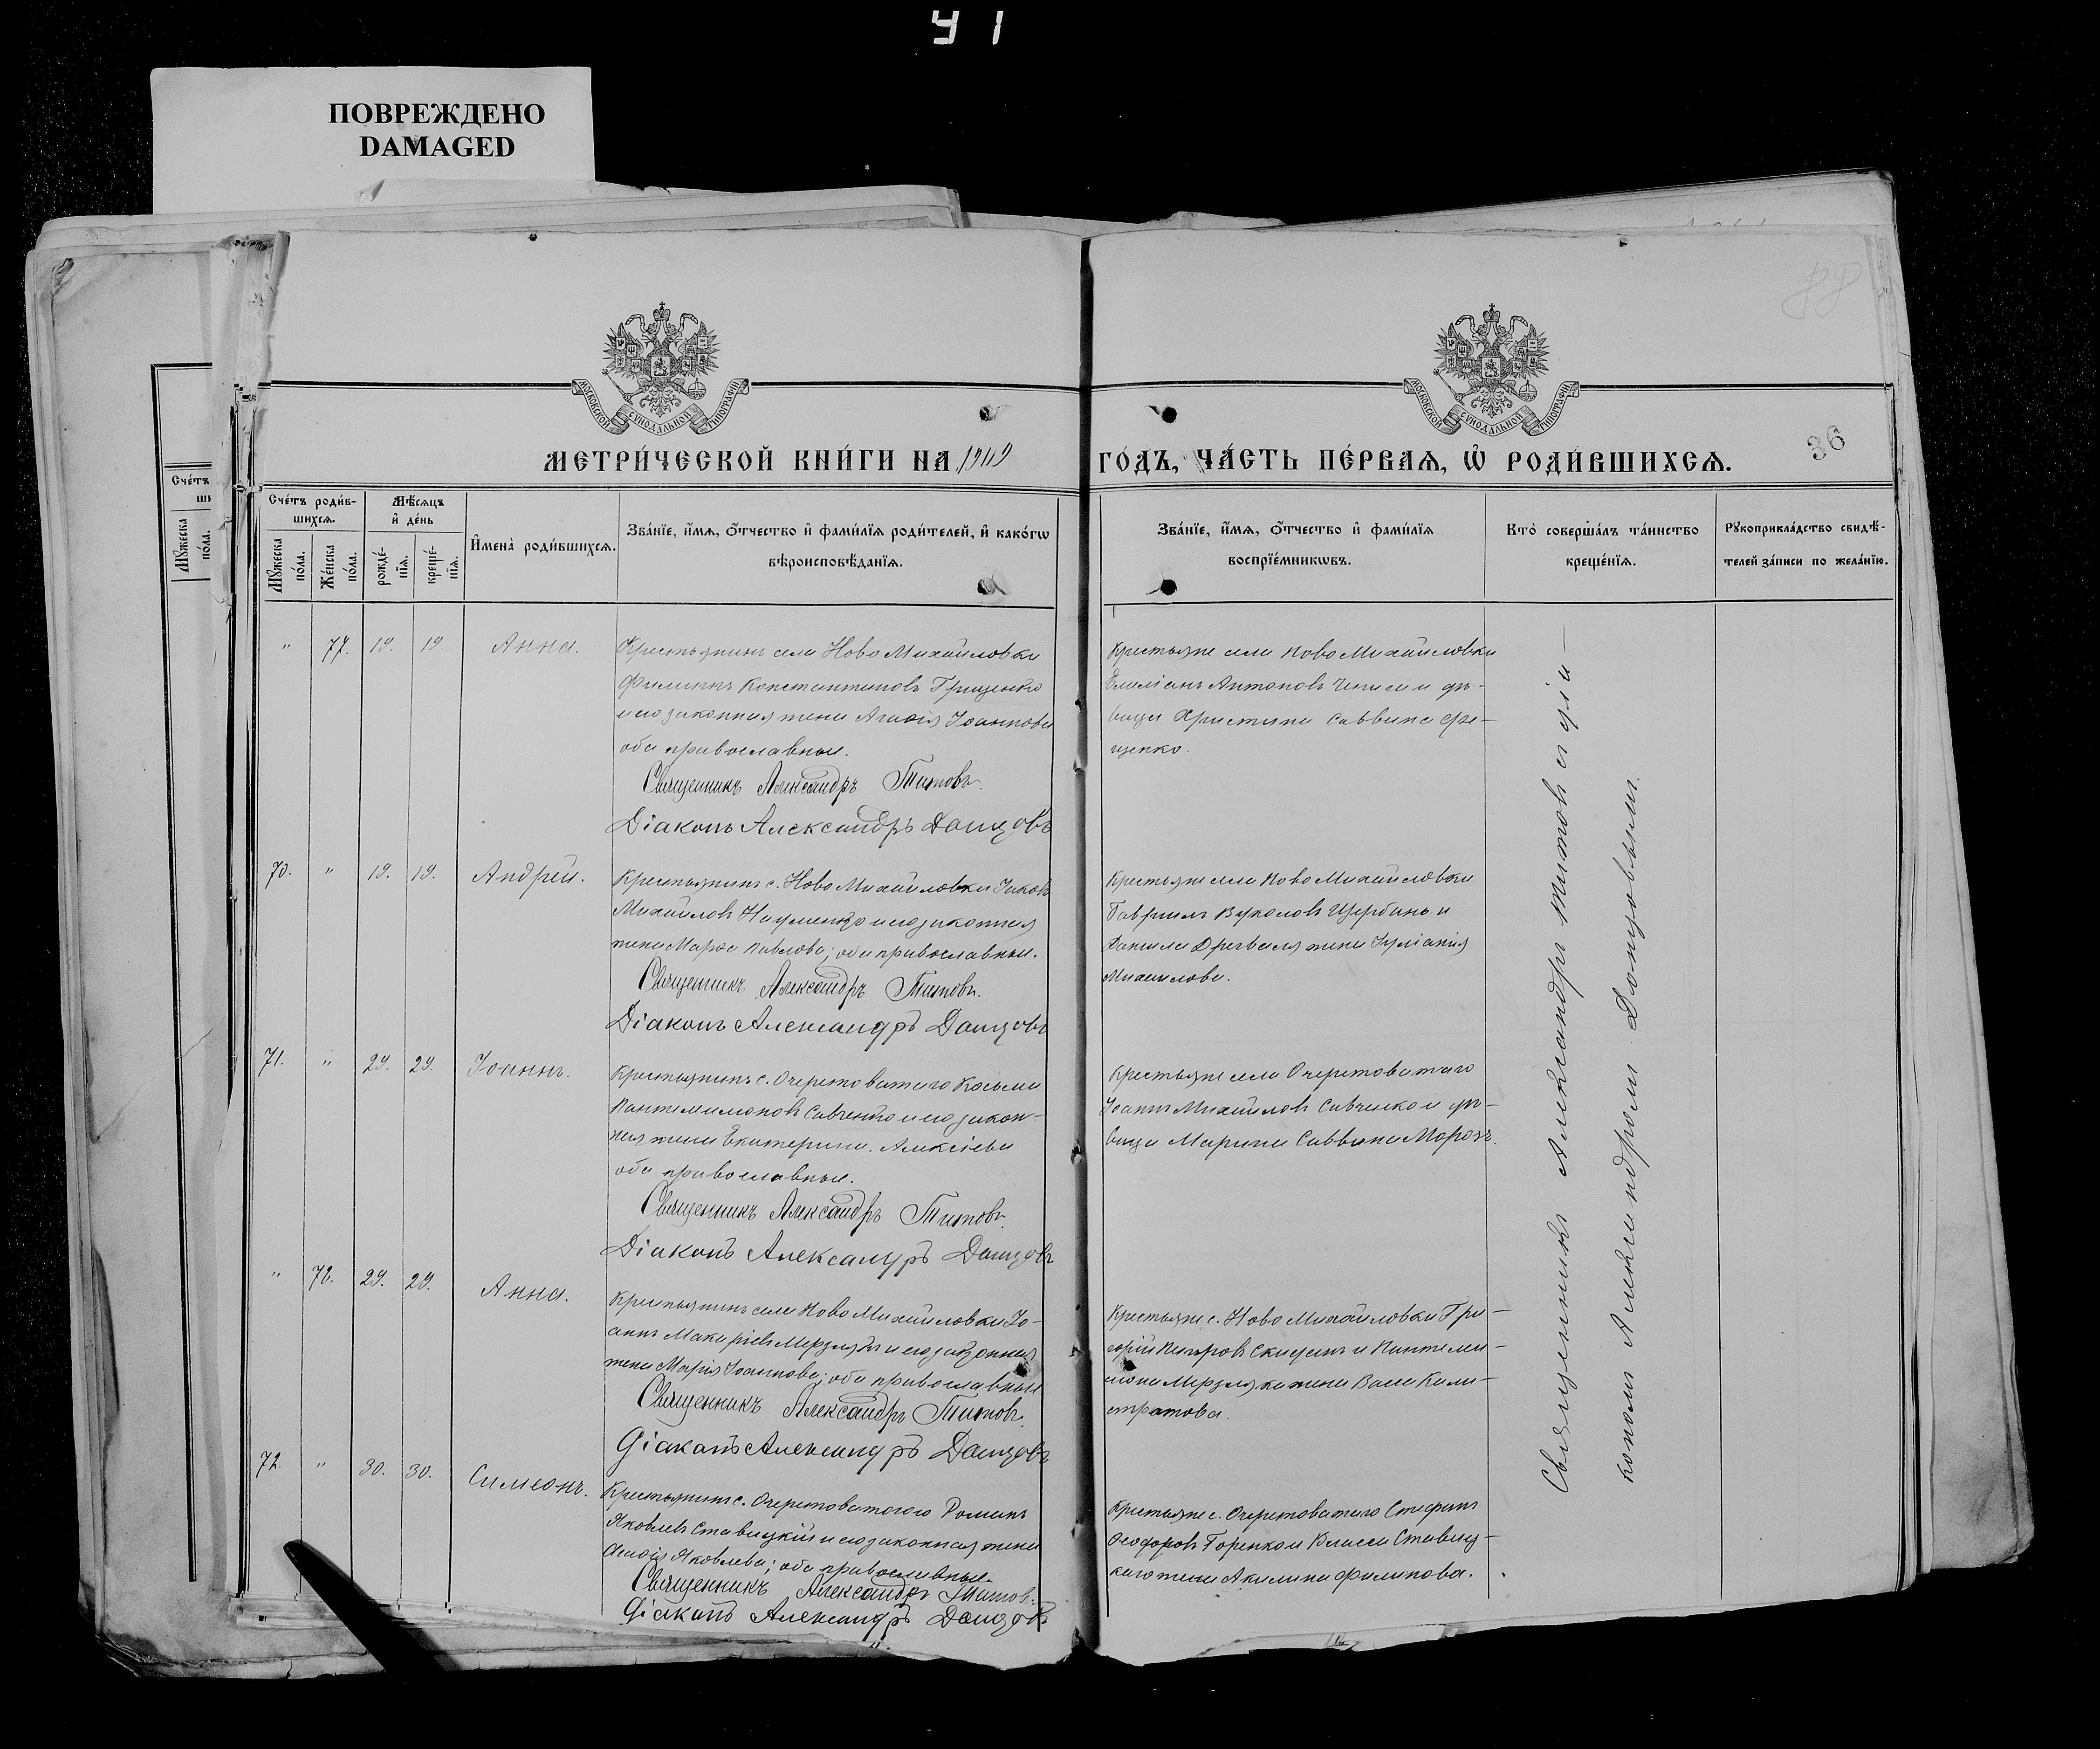 41
ПОВРЕЖДЕНО
DAMAGED
88
МОСКОВСКОЙ СѴНОДАЛЬНОЙ ТИПОГРАФІИ
МОСКОВСКОЙ СѴНОДАЛЬНОЙ ТИПОГРАФІИ
МЕТРИ́ЧЕСКОЙ КНИ́ГИ НА 1909 ГО́ДЪ, ЧА́СТЬ ПЕ́РВАЯ, Ѡ҆ РОДИ́ВШИХСЯ.
36
Сче́тъ
Мꙋ́жеска по́ла.
Сче́тъ роди́в-
шихся.
Мꙋ́жеска по́ла.
Же́нска по́ла.
Мѣ́сяцъ
и҆ де́нь
рожде́-
нїя.
креще́-
нїя.
И҆мена̀ роди́вшихся.
Зва́нїе, и҆́мя, ѻ҆́тчество и҆ фами́лїя роди́телей, и҆ како́гѡ
вѣроисповѣ́данїя.
Зва́нїе, и҆́мя, ѻ҆́тчество и҆ фами́лїя
воспрїе́мникѡвъ.
Кто̀ соверша́лъ та́инство
креще́нїя.
Рꙋкоприкла́дство свидѣ́-
телей за́писи по жела́нїю.
" 77. 19. 19. Анна.
Крестьянинъ села Ново Михайловки
Филиппъ Константиновъ Грищенко
и его законная жена Агаѳія Іоаннова
оба православные.
Священникъ Александръ Титовъ.
Діаконъ Александръ Донцовъ
Крестьяне села Ново Михайловки
Емеліанъ Антоновъ и дѣ-
вица Христина Саввина Гри-
щенко.
70. " 19. 19. Андрей.
Крестьянинъ с. Ново Михайловки Іаковъ
Михайловъ Науменко и его законная
жена Марѳа Павлова; оба православные.
Священникъ Александръ Титовъ.
Діаконъ Александръ Донцовъ
Крестьяне села Ново Михайловки
Гавріилъ Вуколовъ Щербина и
Данила жена Іуліанія
Михайлова.
71. " 29. 29. Іоаннъ.
Крестьянинъ с. Очеретоватаго Косьма
Пантелимоновъ Савченко и его закон-
ная жена Екатерина Алексіева
оба православные.
Священникъ Александръ Титовъ.
Діаконъ Александръ Донцовъ
Крестьяне села Очеретоватаго
Іоаннъ Михайловъ Савченко и дѣ-
вица Марина Саввина Морозъ.
" 78. 29. 29. Анна.
Крестьянинъ села Ново Михайловки Іо-
аннъ Макаріевъ Мерзлякъ и его законная
жена Марія Іоаннова; оба православные
Священникъ Александръ Титовъ.
Діаконъ Александръ Донцовъ
Крестьяне с. Ново Михайловки Гри-
горій Петровъ и Пантелеи-
мона Мерзляка жена Васса Кали-
стратова.
72. " 30. 30. Симеонъ.
Крестьянинъ с. Очеретоватого Романъ
Яковлевъ Ставицкій и его законная жена
Агаѳія Яковлева; оба православные.
Священникъ Александръ Титовъ.
Діаконъ Александръ Донцовъ
Крестьяне с. Очеретоватаго Стефанъ
Ѳеодоровъ Горенко и Власса Ставиц-
каго жена Акилина Филипова.
Священникъ Александръ Титовъ съ діа-
кономъ Александромъ Донцовымъ.